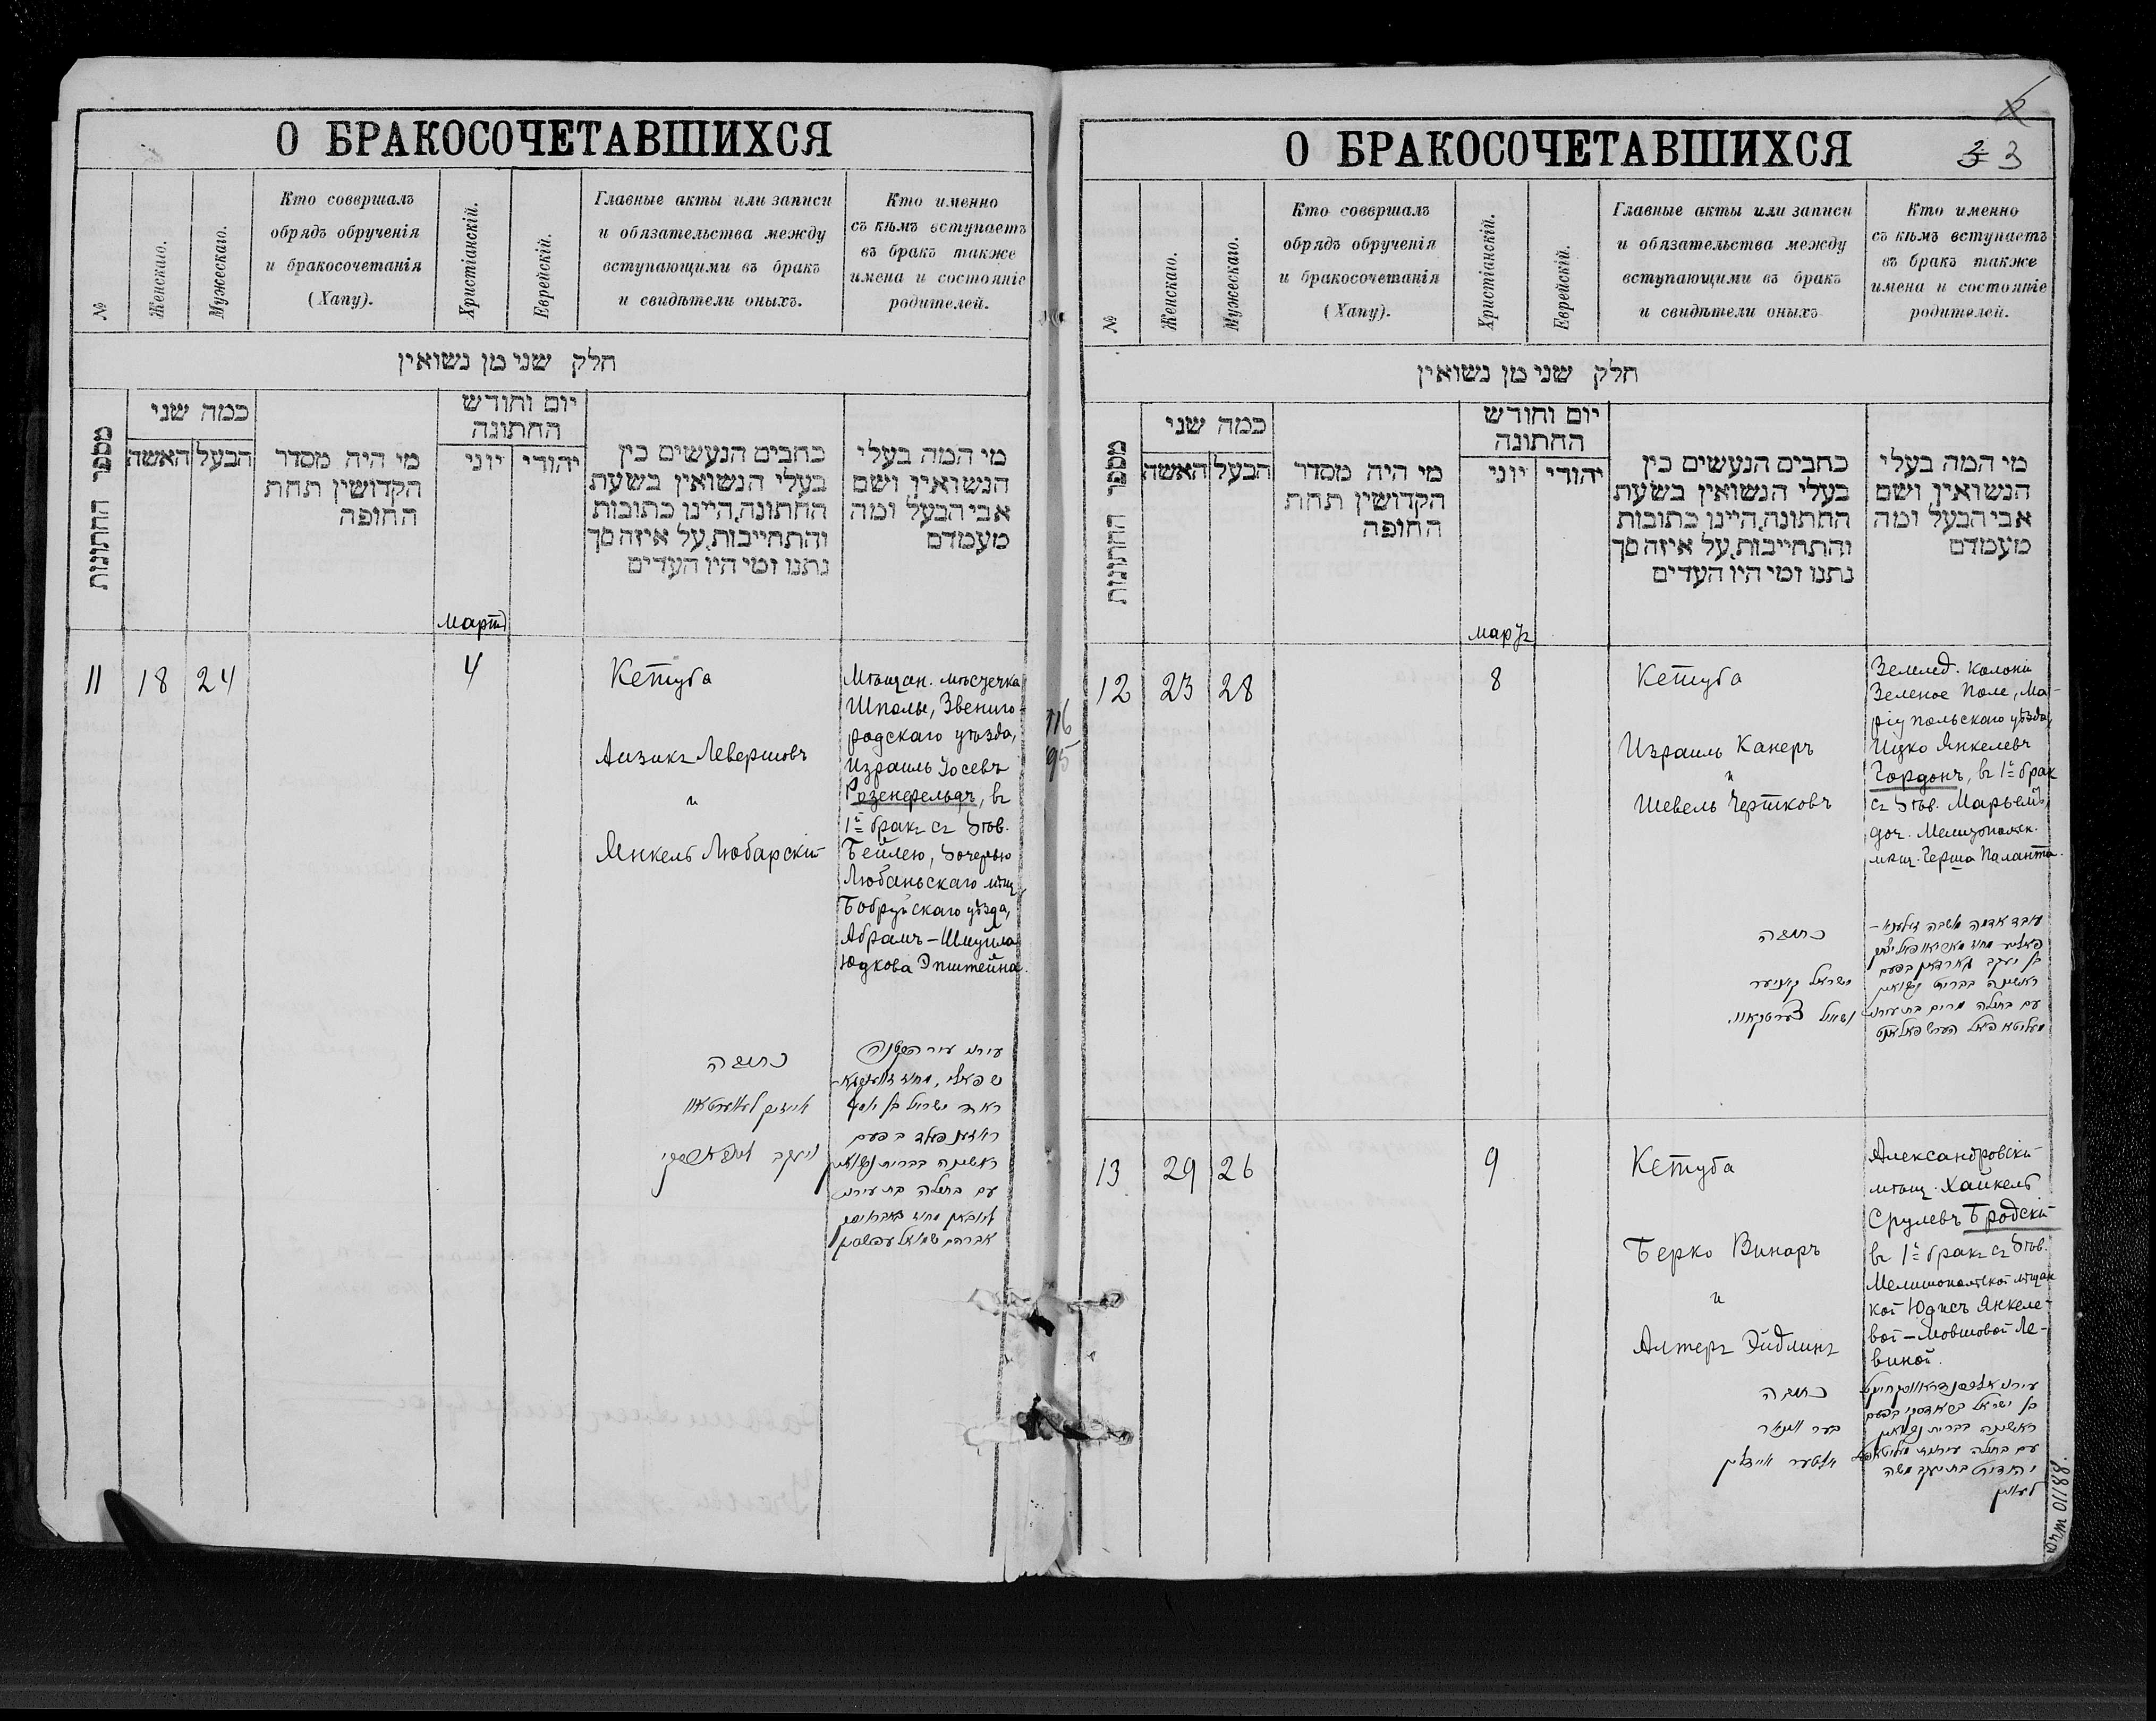 О БРАКОСОЧЕТАВШИХСЯ
№
Женскаго.
Мужескаго.
Кто совершалъ
обрядъ обрученія
и бракосочетанія
(Хапу).
Христіанскій.
Еврейскій.
Главные акты или записи
и обязательства между
вступающими въ бракъ
и свидѣтели оныхъ.
Кто именно
съ кѣмъ вступаетъ
въ бракъ также
имена и состояніе
родителей.
חלק שני מן נשואין
מספר החתונות
כמה שני
האשה
הבעל
מי היה מסדר
הקדושין תחת
החופה
יום וחודש
החתונה
יוני
יהודי
כתבים הנעשים בין
בעלי הנשואין בשעת
החתונה, היינו כתובות
והתחייבות, על איזה סך
נתנו ומי היו העדים
מי המה בעלי
הנשואין ושם
אבי הבעל ומה
מעמדם
Мартъ
11
18
24
4
Кетуба
Аизикъ Левертовъ
и
Янкель Любарскій
Мѣщан. мѣстечка
Шполы, Звениго-
родскаго уѣзда,
Израиль Іосевъ
Розенфельдъ, въ
1й бракъ съ дѣв.
Бейлею, дочерью
Любаньскаго мѣщ.
Бобруйскаго уѣзда,
Абрамъ-Шмуйла
Юдкова Эпштейна.
כתובה
ראשונה בברית נשואין
עם בתולה
О БРАКОСОЧЕТАВШИХСЯ
3
№
Женскаго.
Мужескаго.
Кто совершалъ
обрядъ обрученія
и бракосочетанія
(Хапу).
Христіанскій.
Еврейскій.
Главные акты или записи
и обязательства между
вступающими въ бракъ
и свидѣтели оныхъ
Кто именно
съ кѣмъ вступаетъ
въ бракъ также
имена и состояніе
родителей.
חלק שני מן נשואין
מספר החתונות
כמה שני
האשה
הבעל
מי היה מסדר
הקדושין תחת
החופה
יום וחודש
החתונה
יוני
יהודי
כתבים הנעשים בין
בעלי הנשואין בשעת
החתונה, היינו כתובות
והתחייבות, על איזה סך
נתנו ומי היו העדים
מי המה בעלי
הנשואין ושם
אבי הבעל ומה
מעמדם
Мартъ
12
23
28
8
Кетуба
Израиль Канеръ
и
Шевель Чертковъ
Землед. колоніи
Зеленое Поле, Ма-
ріупольскаго уѣзда,
Ицко Янкелевъ
Гордонъ, въ 1й брак
съ дѣв. Марьей,
доч. Мелитопольск.
мѣщ. Герша Паланта.
כתובה
ישראל קאנער
ראשונה בברית נשואין
13
29
26
9
Кетуба
Берко Винаръ
и
Алтеръ Эйдлинъ
Александровскій
мѣщ. Хайкель
Срулевъ Бродскій
въ 1й бракъ съ дѣв.
Мелитопольской мѣщан
кой Юдисъ Янкеле-
вой-Мовшовой Ле-
виной.
כתובה
בער ווינאר
אלטער איידלין
ראשונה בברית נשואין
לעווין